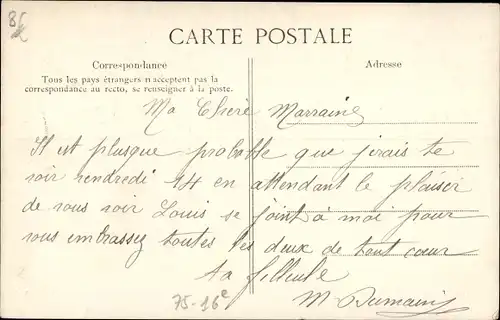 CARTE POSTALE
Correspondance
Adresse
Tous les pays étrangers n'acceptent pas la
correspondance au recto, se renseigner à la poste.
Ma Chère Marraine
Il est plusque probable que j'irais te
voir vendredi 14 en attendant le plaisir
de vous voir Louis se joint à moi pour
vous embrassez toutes les deux de tout cœur
ta filleule
M
75-16e